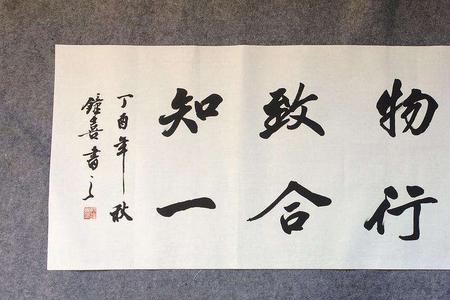 物致知
行合一
丁酉年秋
鐘喜書之